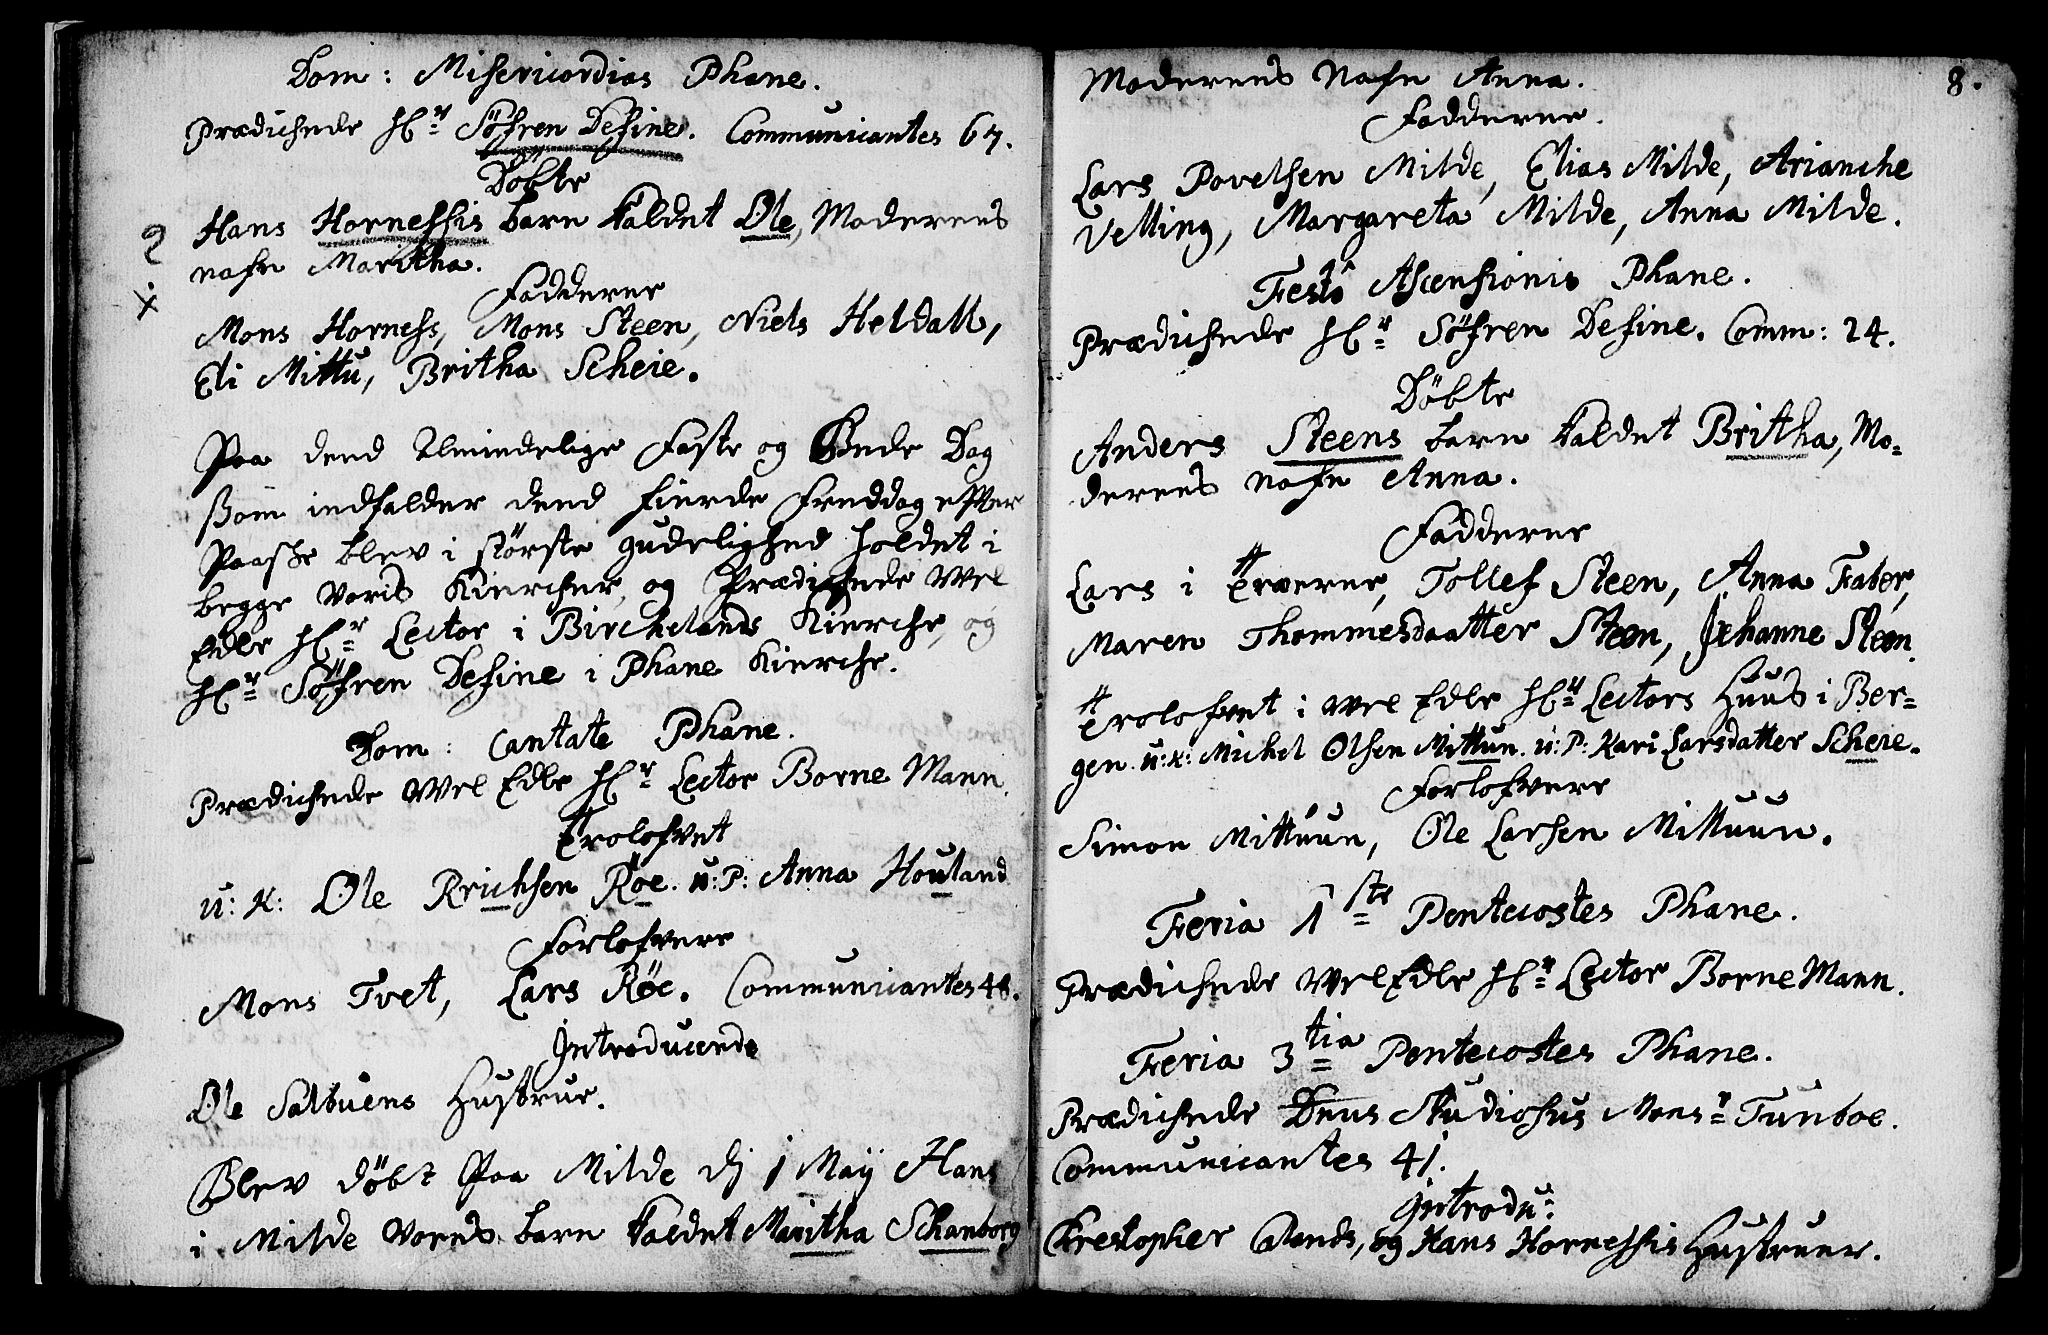 Dom: Misericordias Phane.
Prædichede Hr Söfren Define. Communicantes 67.
Döbte
Hans Hornessis barn kaldet Ole, Moderens
nafn Maritha.
Fadderne
Mons Horness, Mons Steen, Niels Heldall,
Eli Mittu, Britha Scheie.
Paa dend Almindelige Faste og Bede Dag
som indfalder dend fierde Freddag efter
Paaske blev i største gudelighed holdet i
begge voris Kiercher, og Prædichede Wel
Edle Hr Lector i Birchelands Kierche, og
Hr Söfren Define i Phane Kierche.
Dom: Cantate Phane.
Prædichede Wel Edle Hr Lector Borne Mann.
Trolofvet
u: K: Ole Krichsen Röe. u: P: Anna Houland
Forlofvere
Mons Tvet, Lars Röe. Communicantes 48.
Introducerede
Ole Salbuens Hustrue.
Blev döbt paa Milde dj 1 Maij Hans
i Milde Vores barn kaldet Maritha Schanborg
8.
Moderens Nafn Anna.
Fadderne.
Lars Povelsen Milde, Elias Milde, Arianche
Velling, Margareta Milde, Anna Milde.
Festô Ascensionis Phane.
Prædichede Hr Söfren Define. Comm: 24.
Döbte
Anders Steens barn kaldet Britha, Mo=
derens nafn Anna.
Fadderne
Lars i Træerne, Tollef Steen, Anna Faber,
Maren Thommesdaatter Steen, Johanne Steen.
Trolofvet i Wel Edle Hr Lectors Huus i Ber=
gen u: K: Michel Olsen Mittun. u: P: Kari Larsdatter Scheie.
Forlofvere
Simon Mittuun, Ole Larsen Mittuun.
Feria 1ste Pentecostes Phane.
Prædichede Wel Edle Hr Lector Borne Mann.
Feria 3tia Pentecostes Phane.
Prædichede Dnus Studiosus Monsr Tunboe.
Communicantes 41.
Introdu:
Chrestopher Dands, og Hans Hornessis Hustruer.